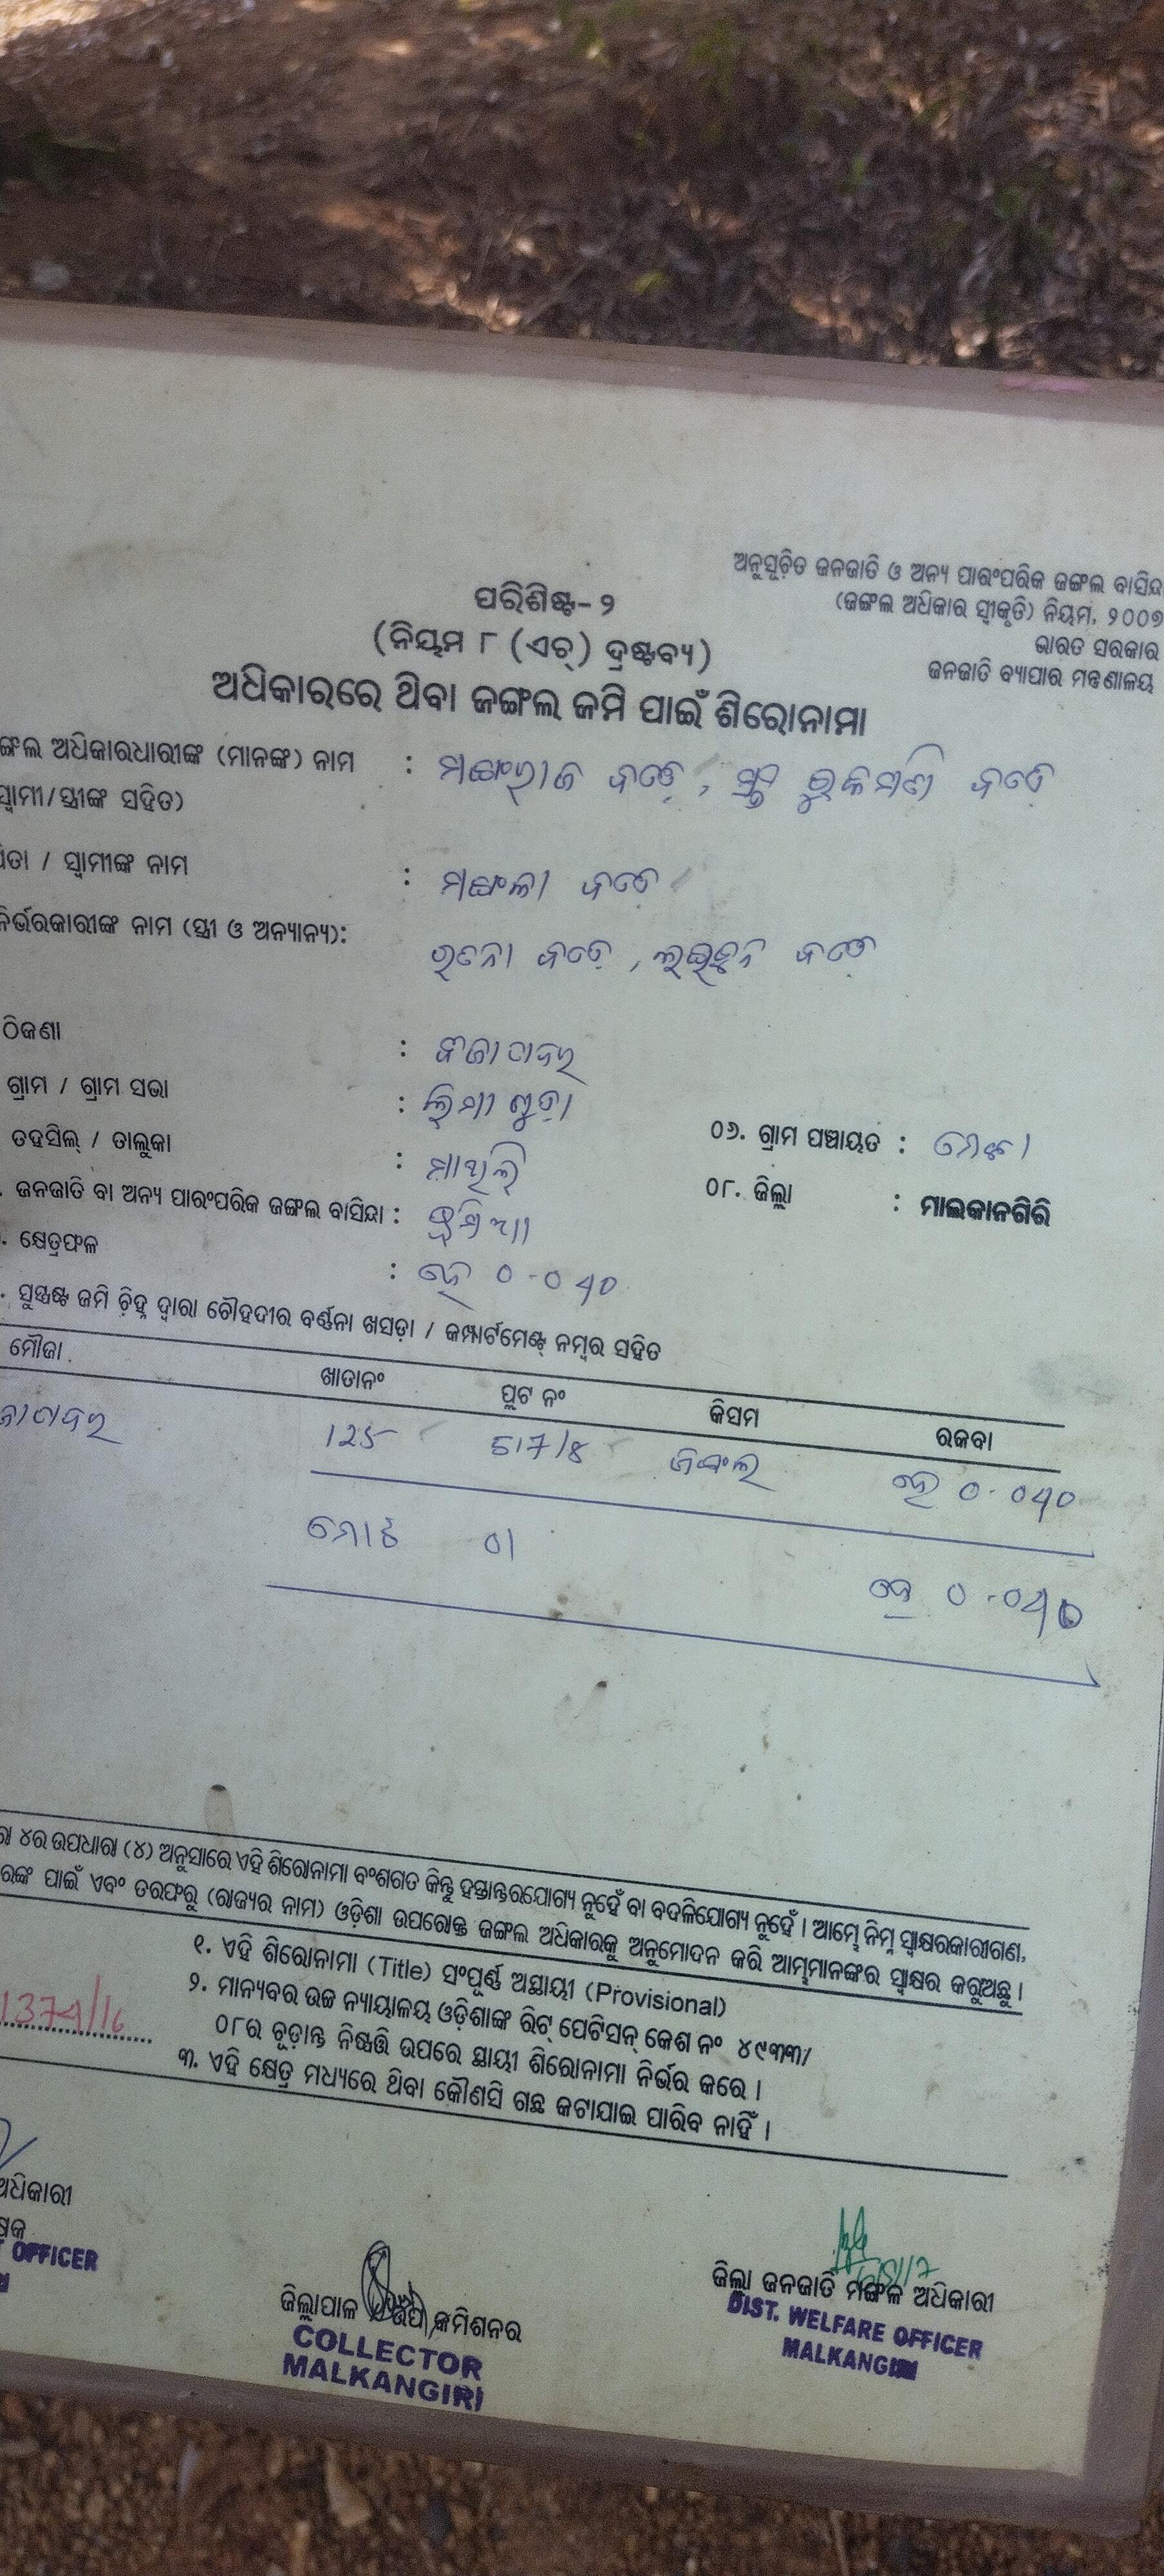 ଅନୁସୂଚିତ ଜନଜାତି ଓ ଅନ୍ୟ ପାରଂପରିକ ଜଙ୍ଗଲ ବାସିନ୍ଦା
(ଜଙ୍ଗଲ ଅଧିକାର ସ୍ୱୀକୃତି) ନିୟମ, ୨୦୦୭
ଭାରତ ସରକାର
ଜନଜାତି ବ୍ୟାପାର ମନ୍ତ୍ରଣାଳୟ
ପରିଶିଷ୍ଟ-୨
(ନିୟମ ୮ (ଏଚ୍) ଦ୍ରଷ୍ଟବ୍ୟ)
ଅଧିକାରରେ ଥିବା ଜଙ୍ଗଲ ଜମି ପାଇଁ ଶିରୋନାମା
ଙ୍ଗଲ ଅଧିକାରଧାରୀଙ୍କ (ମାନଙ୍କ) ନାମ :
ସ୍ୱାମୀ/ସ୍ତ୍ରୀଙ୍କ ସହିତ)
ପିତା / ସ୍ୱାମୀଙ୍କ ନାମ :
ନିର୍ଭରକାରୀଙ୍କ ନାମ (ସ୍ତ୍ରୀ ଓ ଅନ୍ୟାନ୍ୟ):
ଠିକଣା :
ଗ୍ରାମ / ଗ୍ରାମ ସଭା :
୦୬. ଗ୍ରାମ ପଞ୍ଚାୟତ :
ତହସିଲ୍ / ତାଲୁକା : ମାଥିଲି
୦୮. ଜିଲ୍ଲା : ମାଲକାନଗିରି
. ଜନଜାତି ବା ଅନ୍ୟ ପାରଂପରିକ ଜଙ୍ଗଲ ବାସିନ୍ଦା : ଭୂମିଆ
. କ୍ଷେତ୍ରଫଳ : ହେ ୦-୦୩୦
. ସୁସ୍ପଷ୍ଟ ଜମି ଚିହ୍ନ ଦ୍ୱାରା ଚୌହଦୀର ବର୍ଣ୍ଣନା ଖସଡ଼ା / କମ୍ପାର୍ଟମେଣ୍ଟ୍ ନମ୍ବର ସହିତ
ମୌଜା ଖାତାନଂ ପ୍ଲଟ ନଂ କିସମ ରକବା
125 517/8 ଜଙ୍ଗଲ ହେ ୦-୦୩୦
ମୋଟ ହେ ୦-୦୩୦
ରା ୪ର ଉପଧାରା (୪) ଅନୁସାରେ ଏହି ଶିରୋନାମା ବଂଶଗତ କିନ୍ତୁ ହସ୍ତାନ୍ତରଯୋଗ୍ୟ ନୁହେଁ ବା ବଦଳିଯୋଗ୍ୟ ନୁହେଁ । ଆମ୍ଭେ ନିମ୍ନ ସ୍ୱାକ୍ଷରକାରୀଗଣ,
ରଙ୍କ ପାଇଁ ଏବଂ ତରଫରୁ (ରାଜ୍ୟର ନାମ) ଓଡ଼ିଶା ଉପରୋକ୍ତ ଜଙ୍ଗଲ ଅଧିକାରକୁ ଅନୁମୋଦନ କରି ଆମ୍ଭମାନଙ୍କର ସ୍ୱାକ୍ଷର କରୁଅଛୁ ।
୧. ଏହି ଶିରୋନାମା (Title) ସଂପୂର୍ଣ୍ଣ ଅସ୍ଥାୟୀ (Provisional)
୨. ମାନ୍ୟବର ଉଚ୍ଚ ନ୍ୟାୟାଳୟ ଓଡ଼ିଶାଙ୍କ ରିଟ୍ ପେଟିସନ୍ କେଶ ନଂ ୪୯୩୩/
୦୮ର ଚୂଡ଼ାନ୍ତ ନିଷ୍ପତ୍ତି ଉପରେ ସ୍ଥାୟୀ ଶିରୋନାମା ନିର୍ଭର କରେ ।
୩. ଏହି କ୍ଷେତ୍ର ମଧ୍ୟରେ ଥିବା କୌଣସି ଗଛ କଟାଯାଇ ପାରିବ ନାହିଁ ।
ଅଧିକାରୀ
OFFICER
ଜିଲ୍ଲାପାଳ ଉପ କମିଶନର
COLLECTOR
MALKANGIRI
ଜିଲ୍ଲା ଜନଜାତି ମଙ୍ଗଳ ଅଧିକାରୀ
DIST. WELFARE OFFICER
MALKANGIRI